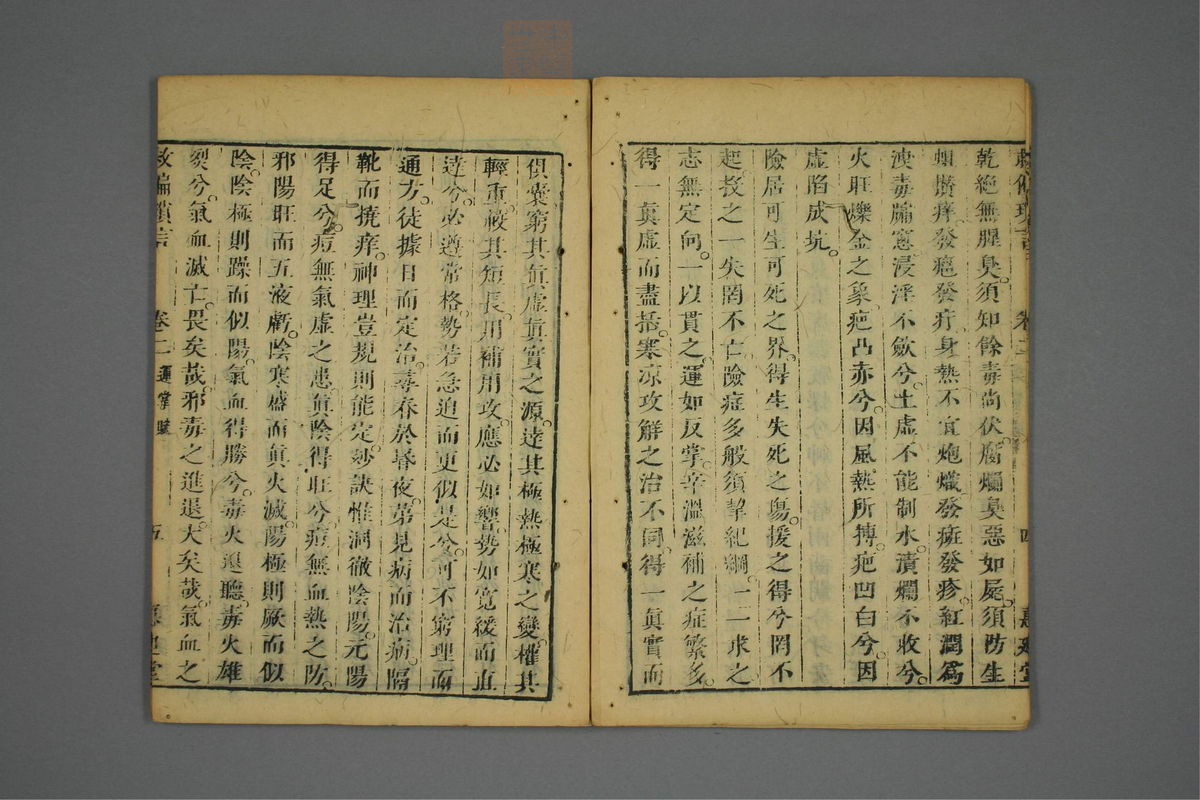 乾絶無腥臭。須知餘毒尚伏。腐爛臭惡如屍。須防生
蛆。攢痒發瘟發疔。身熱不宜炮熾。發斑發疹。紅潤爲
浸淫不歛兮。土虚不能制水。潰爛不收兮。
火旺爍金之象。疤凸赤兮。因風熱所搏。疤凹白兮。因
虚陷成坑。
險居可生可死之界。得生失死之塲。援之得兮罔不
起。投之一失罔不亡。險症多般須挈紀綱。一一求之
志無定向。一以貫之。運如反掌。辛溫滋補之症繁多。
得一眞虚而盡括。寒凉攻解之治不同。得一眞實而
俱囊。窮其眞虚眞實之源。達其極熱極寒之變。權其
輕重。較其短長。用補用攻。應必如響。勢如寬緩而直
達兮。必遵常格。勢若急迫而更似是兮。可不窮理而
通方。徒據日而定治。尋春於昏夜。第見病而治病。隔
靴而撓痒。神理豈規則能定。妙訣惟洞徹陰陽。元陽
得足兮。痘無氣虚之患。眞陰得旺兮。痘無血熱之防。
邪陽旺而五液虧。陰寒盛而眞火滅。陽極則厥而似
陰。陰極則躁而似陽。氣血得勝兮。毒火退聽。毒火雄
裂兮。氣血滅亡。畏矣哉。邪毒之進退。大矣哉。氣血之
救偏瑣言 卷二 運掌賦 五